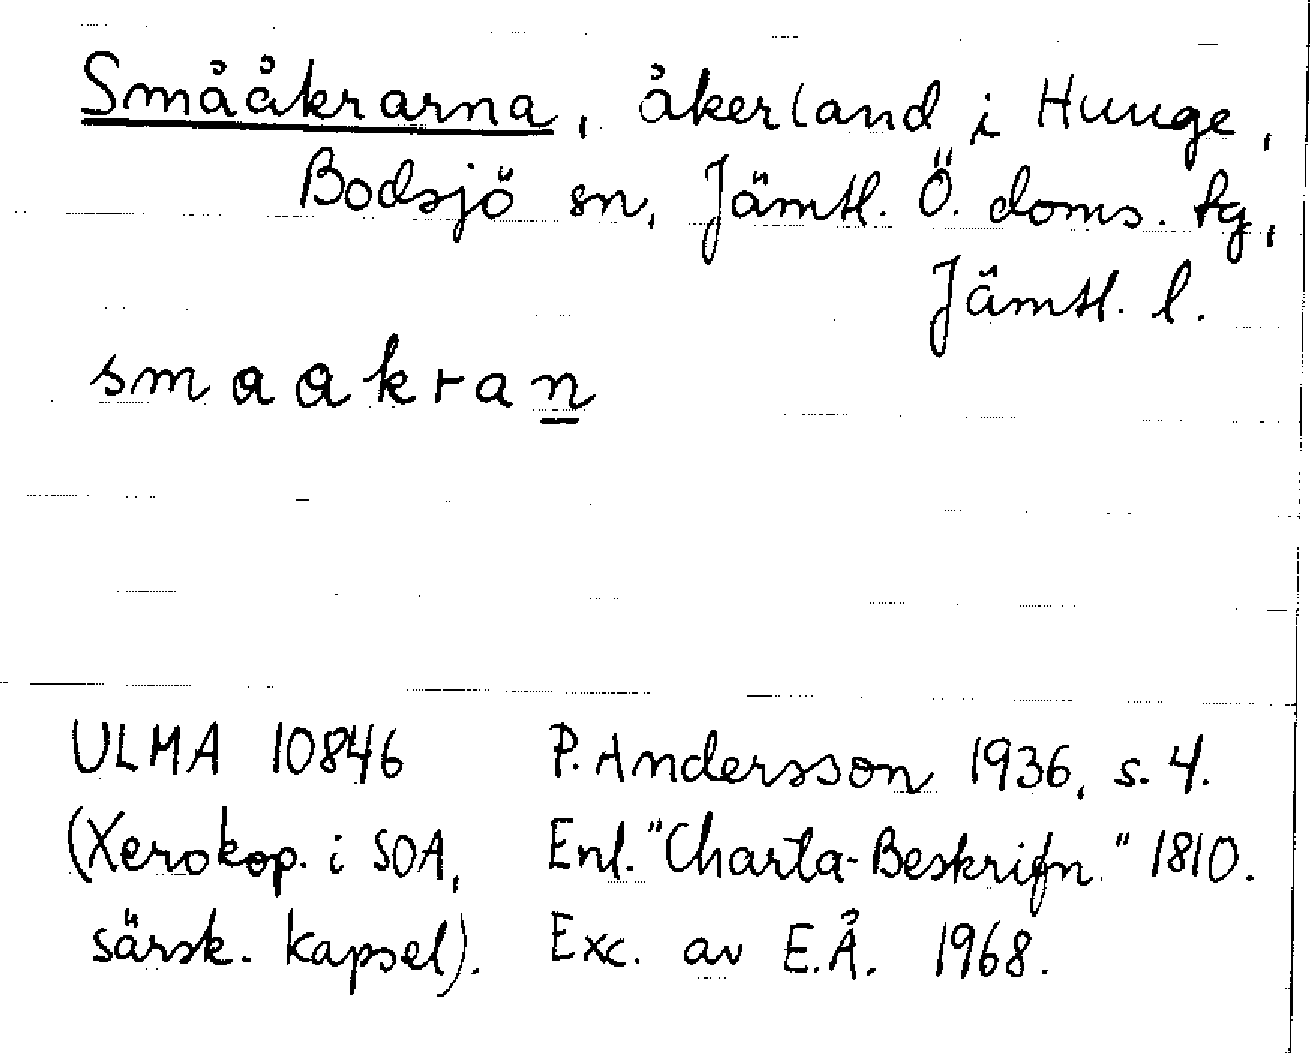 Smååkrarna, åkerland i Hunge,
Bodsjö sn, Jämtl. Ö. doms. tg,
Jämtl. l.
smaakran
ULMA 10846 P. Andersson 1936, s. 4.
(Xerokop. i SOA, Enl. "Charta-Beskrifn." 1810.
särsk. kapsel). Exc. av E.Å. 1968.